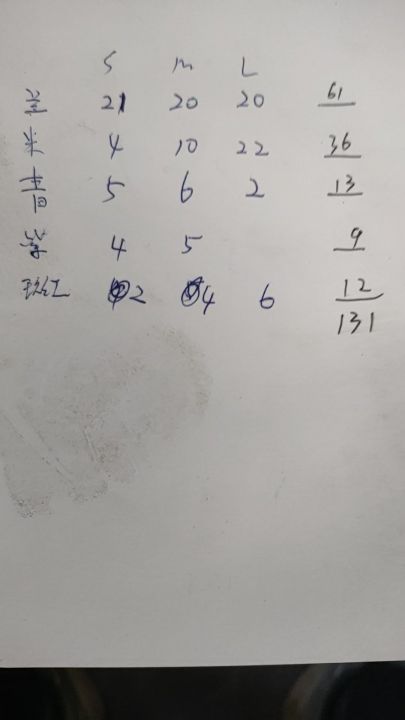 S M L
兰 21 20 20 61
米 4 10 22 36
青 5 6 2 13
紫 4 5 9
玫红 2 4 6 12
131